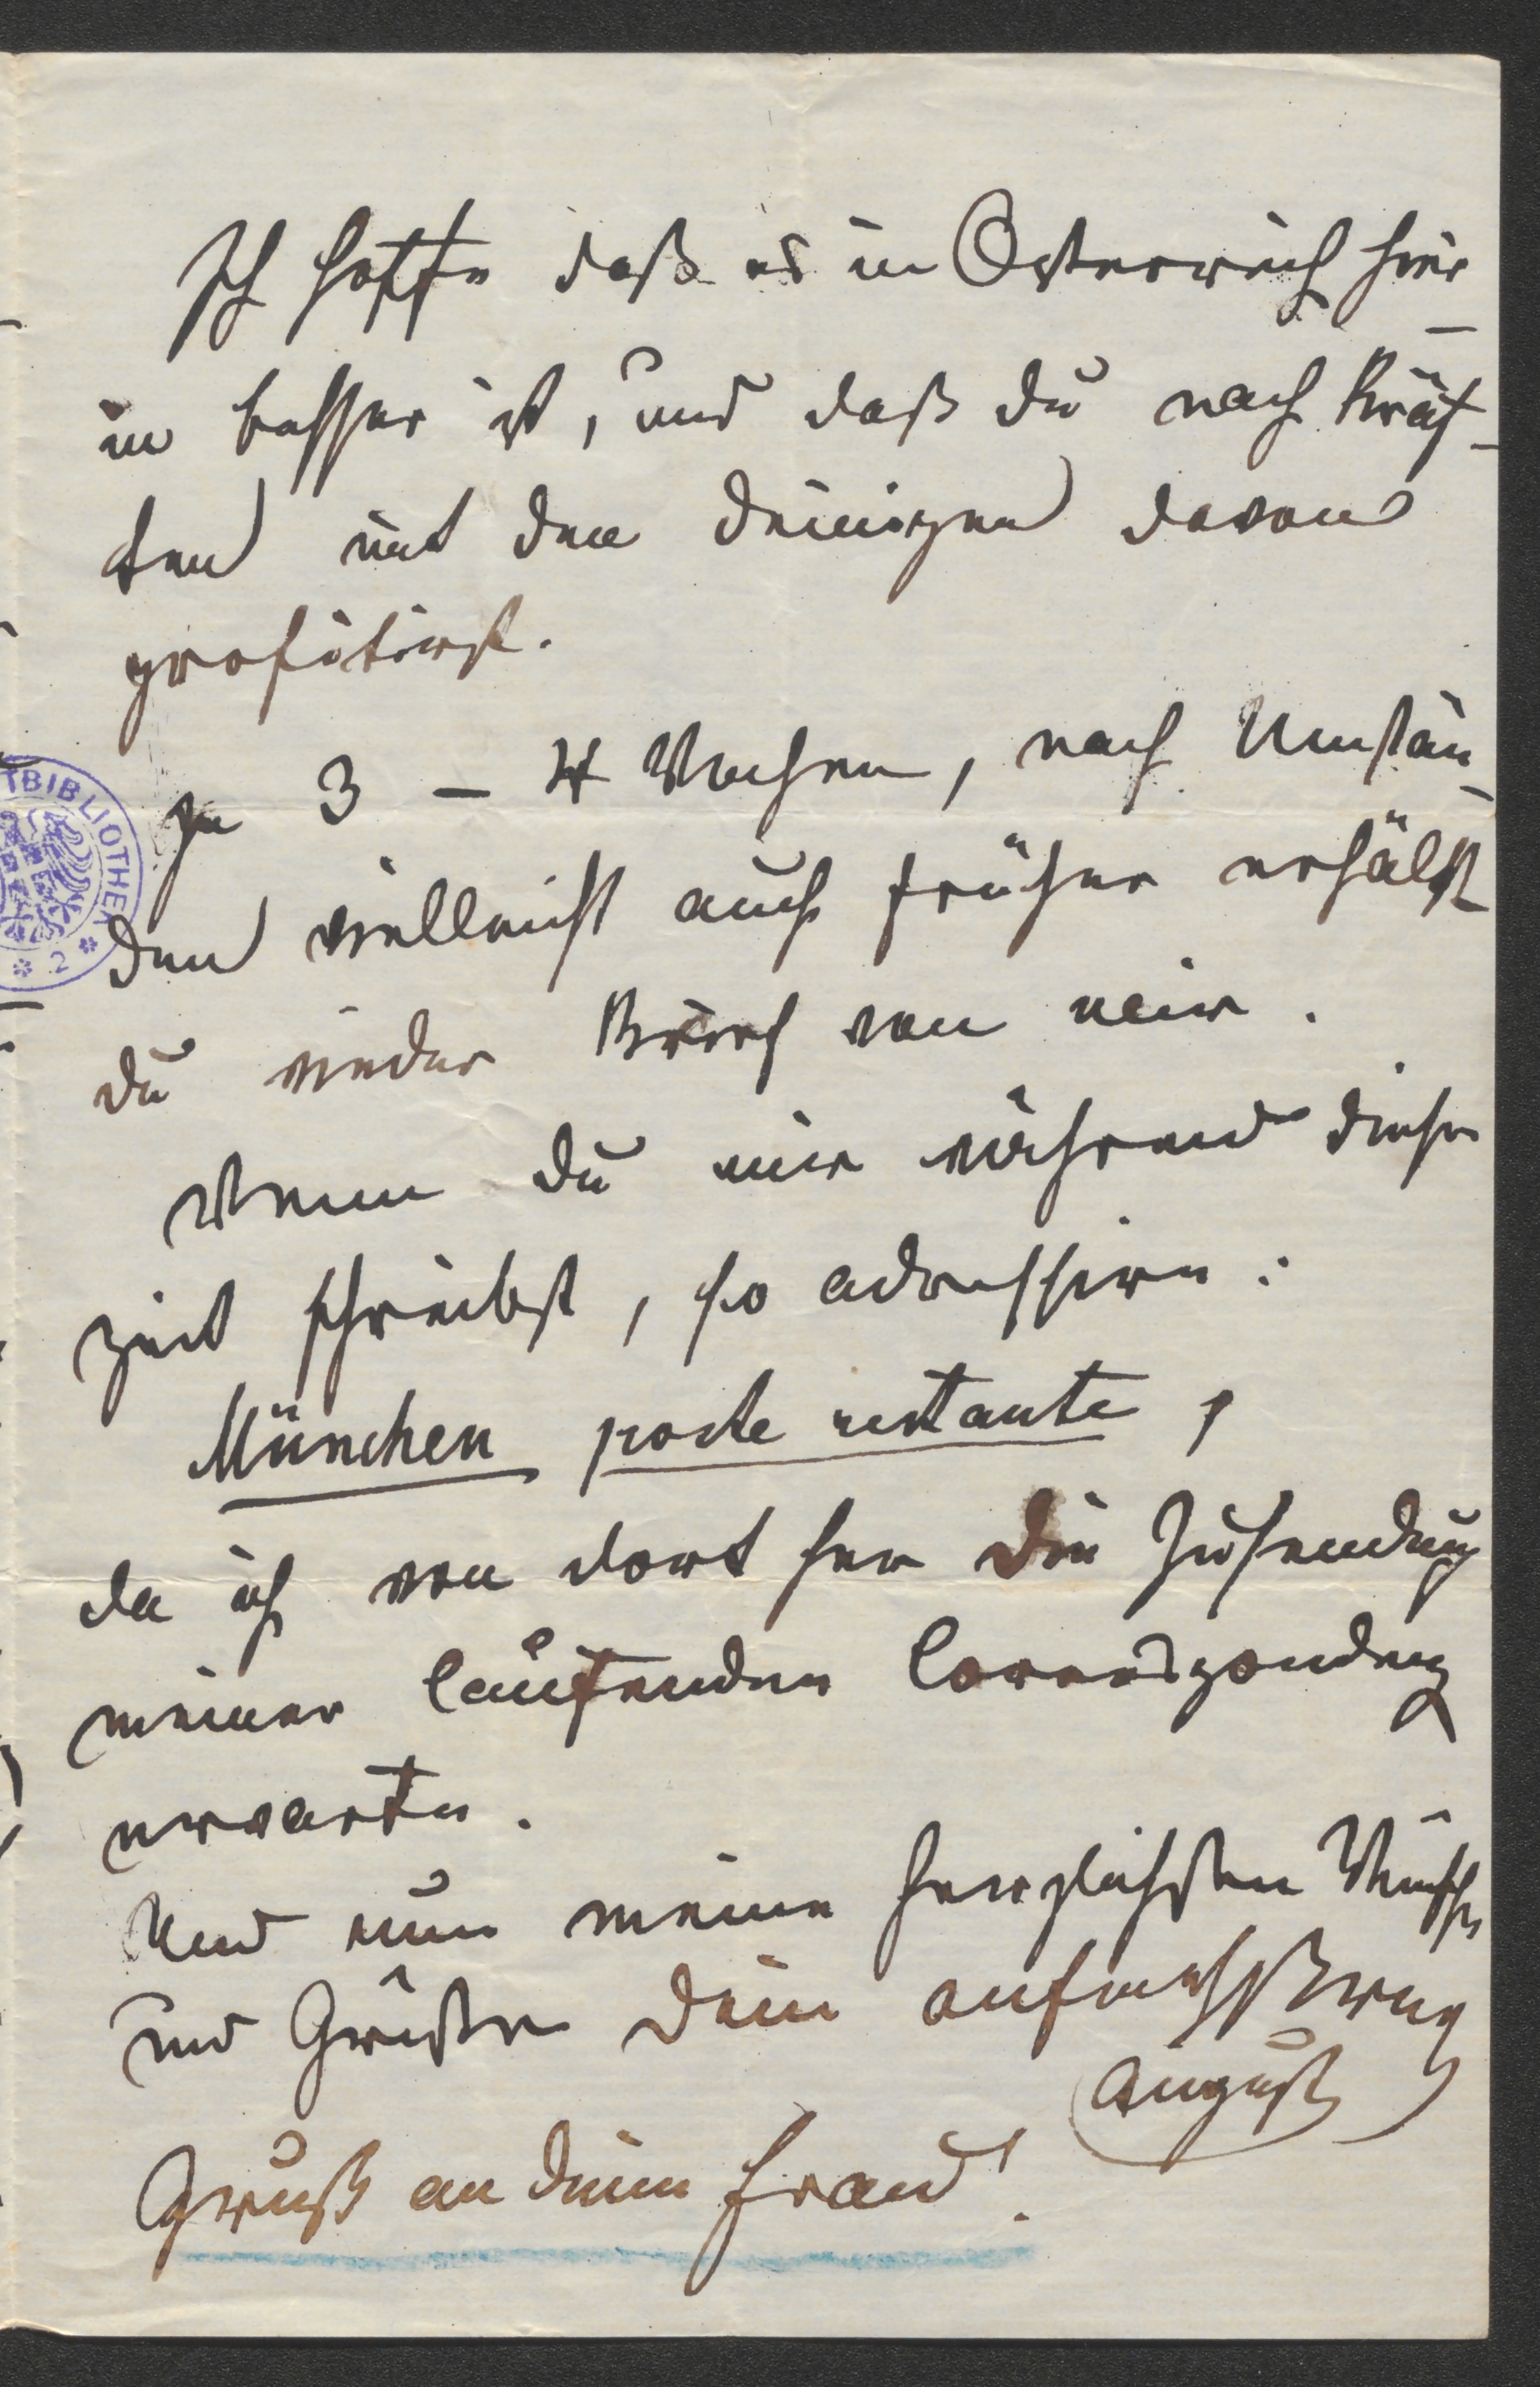 Ich hoffe daß es in Österreich hier-
in besser ist, und daß du nach Kräf-
ten mit den deinigen davon
profitirst.
In 3 – 4 Wochen, nach Umstän-
den vielleicht auch früher erhälst
du wieder Brief von mir.
Wenn du mir während dieser
Zeit schreibst, so adressire:
München poste restante,
da ich von dort her die Zusendung
meiner laufenden Correspondenz
erwarte.
Und nun meine herzlichsten Wünsche
und Grüße dein aufrichtig
August
Gruß an deine Frau!
TBIBLIOTHEK
* 2 *